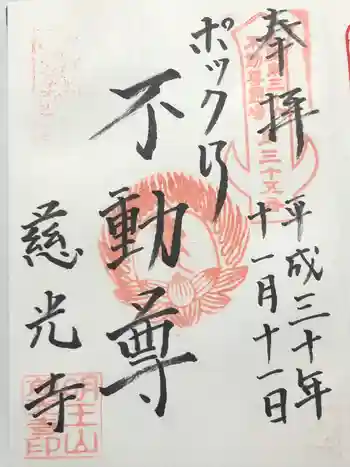 奉拝
平成三十年
十一月十一日
ポックリ
不動尊
慈光寺
明王山